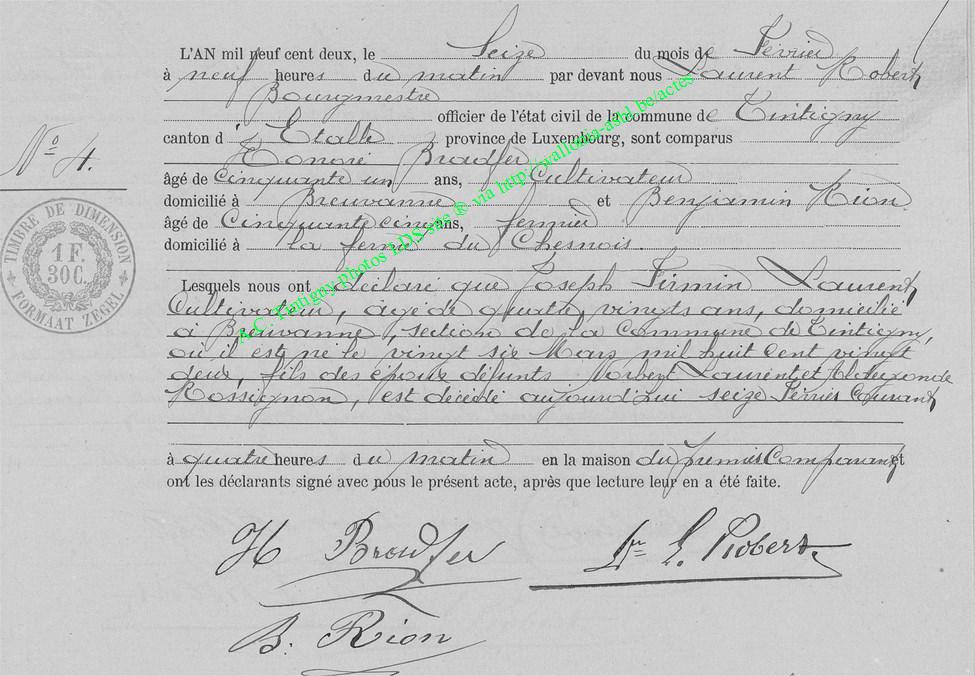 L'AN mil neuf cent deux, le Seize du mois de Février
à neuf heures du matin par devant nous Laurent Robert
Bourgmestre
officier de l'état civil de la commune de Tintigny
canton d'Etalle province de Luxembourg, sont comparus
Honoré Bradfer
âgé de Cinquante un ans, Cultivateur
domicilié à Breuvanne et Benjamin Rion
âgé de Cinquante cinq ans, fermier
domicilié à la ferme du Chesnois.
Lesquels nous ont déclaré que Joseph Firmin Laurent
Cultivateur, âgé de quatre vingts ans, domicilié
à Breuvanne, section de la Commune de Tintigny,
où il est né le vingt six Mars mil huit cent vingt
deux, fils des époux défunts Norbert Laurent et Aldegonde
Rossignon, est décédé aujourd'hui seize Février Courant
à quatre heures du matin en la maison du premier Comparant et
ont les déclarants signé avec nous le présent acte, après que lecture leur en a été faite.
H Bradfer
L. Robert
B. Rion
No 4.
TIMBRE DE DIMENSION
1 F.
30C.
FORMAAT ZEGEL
A.C. Tintigny photos LDS site ® via http://wallonia-asbl.be/actes